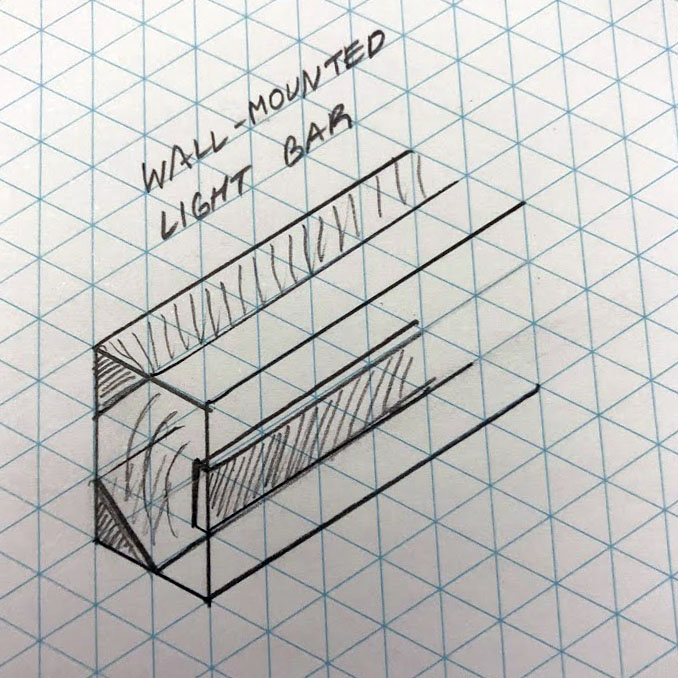 WALL-MOUNTED
LIGHT BAR